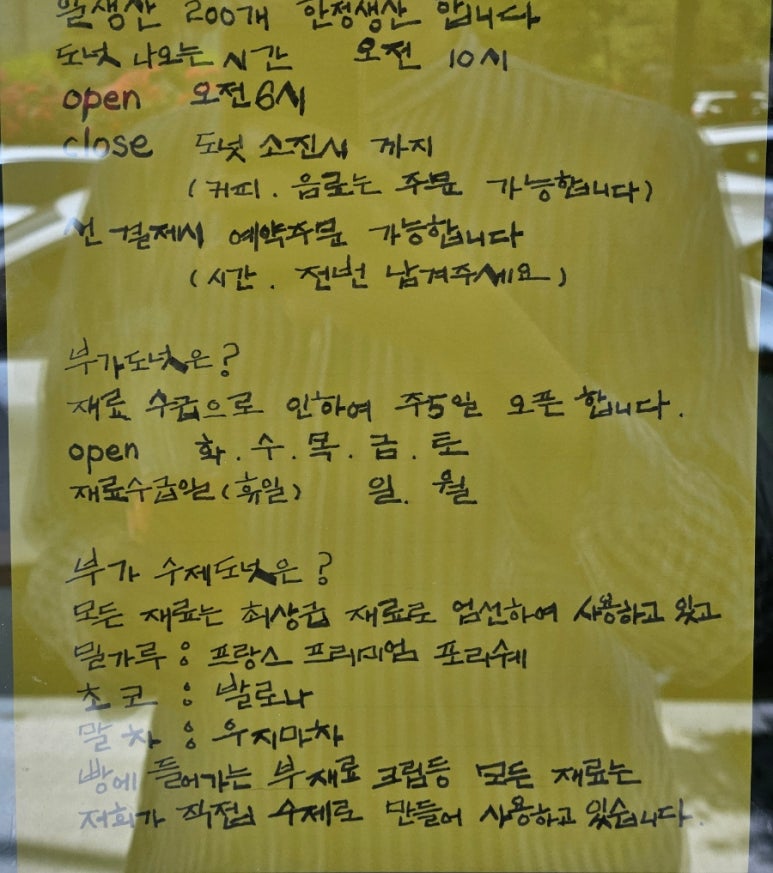 월생산 200개 한정생산 합니다
도넛 나오는 시간 오전 10시
open 오전6시
close 도넛 소진시 까지
(커피. 음료는 주문 가능합니다)
선결제시 예약주문 가능합니다
(시간. 전번 남겨주세요)
부가도넛은?
재료 수급으로 인하여 주5일 오픈 합니다.
open 화.수.목.금.토
재료수급일(휴일) 일.월
부가 수제도넛은?
모든 재료는 최상급 재료로 엄선하여 사용하고 있고
밀가루 : 프랑스 프리미엄 포리쉐
초코 : 발로나
말차 : 우지마차
빵에 들어가는 부재료 크림등 모든 재료는
저희가 직접 수제로 만들어 사용하고 있습니다.